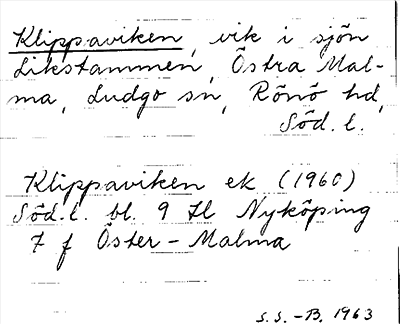 Klippaviken, vik i sjön
Likstammen, Östra Mal-
ma, Ludgo sn, Rönö hd,
Söd. l.
Klippaviken ek (1960)
Söd. l. bl. 9 Il Nyköping
7 f Öster-Malma
S.S.-B. 1963